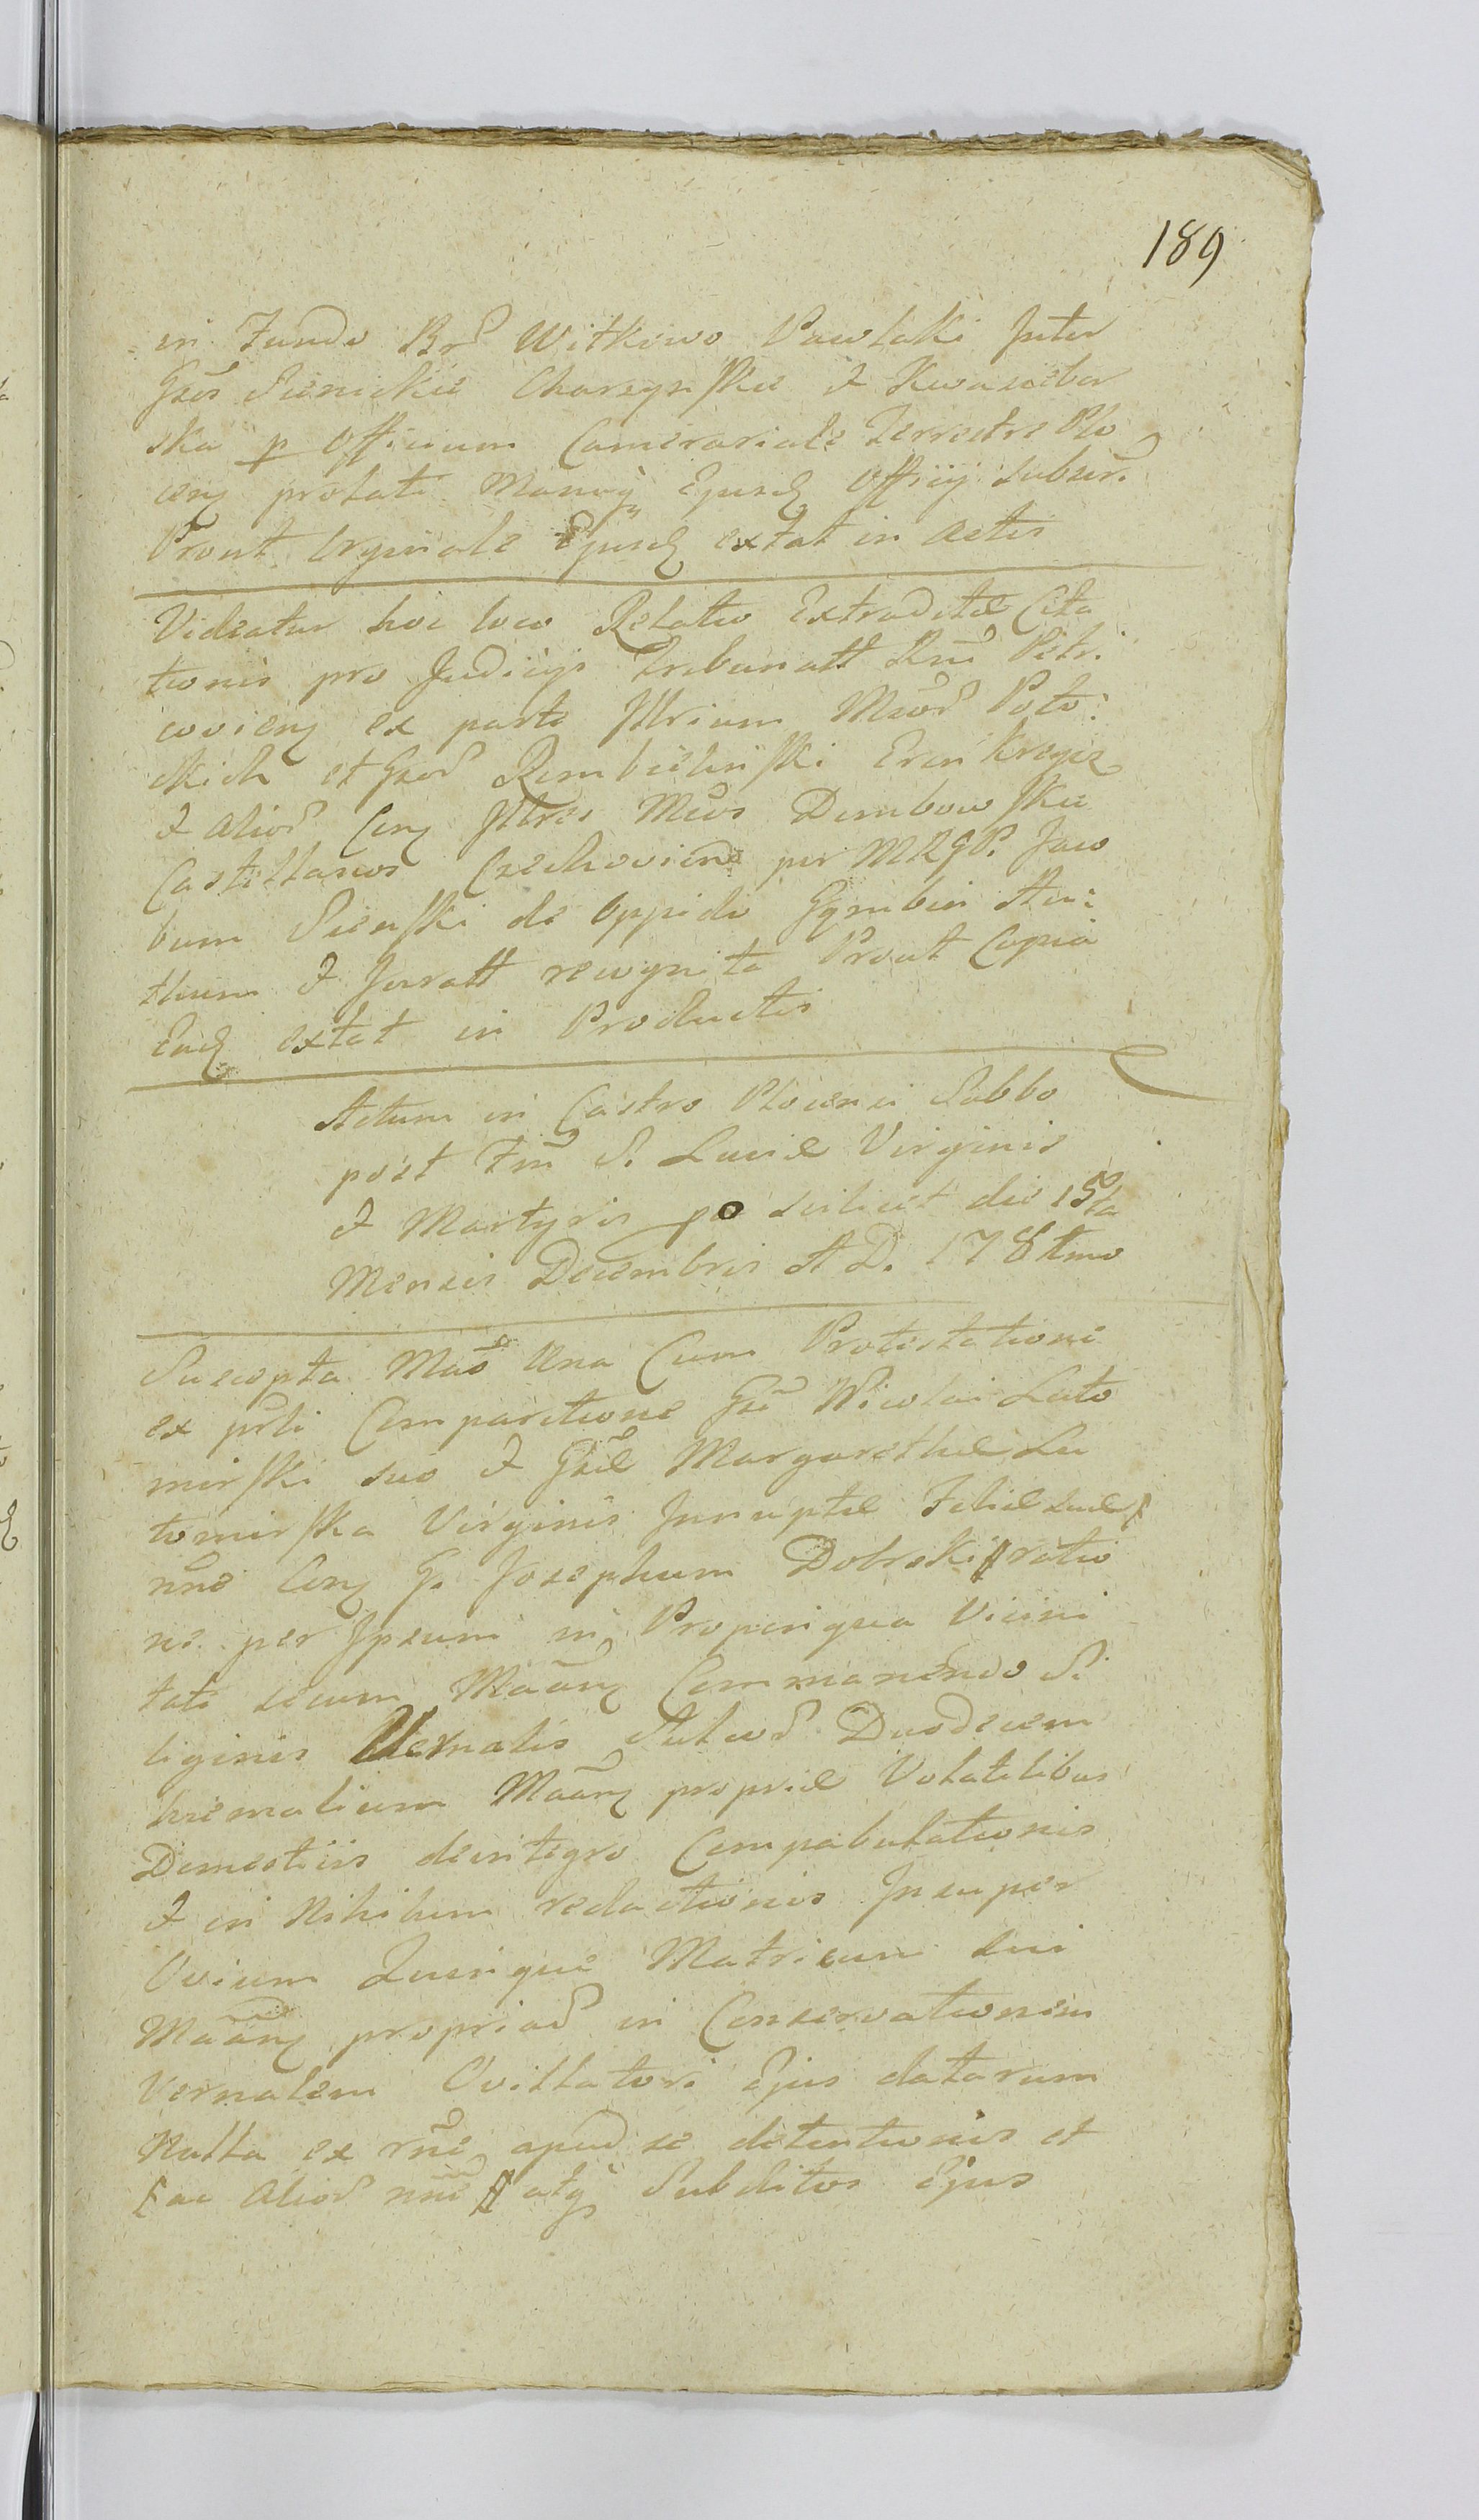 189
in Fundo Br̃ Witkowo Pawlaki Inter
Gsõs Sienickie Charzynskie & Kwasebor
ska p Officium Camerariale Terrestre Plo
ceñ prolati Manuq̃ Ejusd Officij subscr.
Prout Orginale Ejusd extat in actis
Videatur hoc loco Relatio Extraditæ Cita
tionis pro Judicijs Tribunalt Rnĩ Petri
covieñ ex parte Illrium Mcor̃ Poto:
ckich et Gsor̃ Rembielinski
& Alior̃ Coñ Illres Mcos Dembowskie
Castellanos Czechovien per MRGP. Jaco
bum Sienski de Oppido Gombin Au:
thum & Juratt recognita Prout Copia
Ead extat in Productis
Actum in Castro Plocensi Sabbo
post Fm̃ S. Luciæ Virginis
& Martyris po scilicet die 15ta
Mensis Decembris A D. 178tmo
Suscepta Mãs Una Cum Protestatione
ex prli Comparitione Gsĩ Nicolai Luto
mirski suo & Gsæ̃ Margarethæ Lu
tomirska Virginis Innuptæ Filiæ suæ
nñe Coñ G. Josephum Dobrski ratio
ne per Ipsum in Propinqua Vicini
tate secum Mãañ Commanendo Si
liginis Vernalis Sulcor̃ Duodecem
hiemalium Mãañ propriæ Volatilibus
Domesticis deintegro Compabulationis
& in Nihilum redactionis Insuper
Ovium Quinque Matricum sui
Mãañ propriar̃ in Conservationem
Vernalem Ovillatori Ejus datarum
Nulla ex rñe apud se detentionis et
ac Alior̃ nñe atq̃ Subditos Ejus